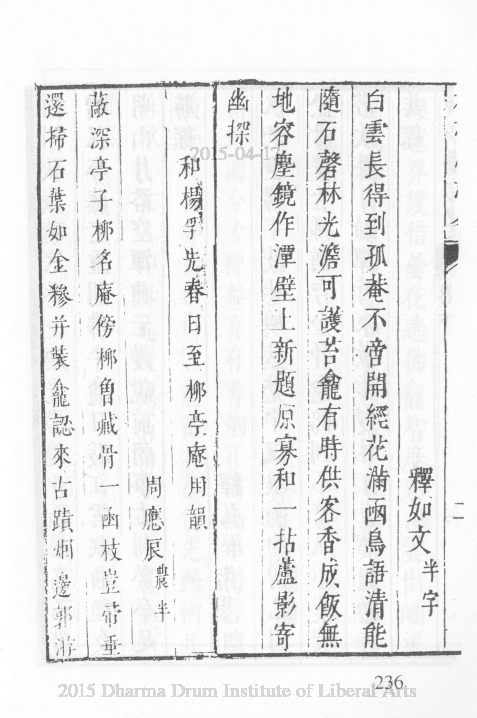 二
釋如文半字
白雲長得到孤菴不啻開經花滿函鳥語清能
隨石磬林光澹可護苔龕有時供客香成飯無
地容塵鏡作潭壁上新題原寡和一拈蘆影寄
幽探
和楊孚先春日至栁亭庵用韻
周應辰農半
蔽深亭子栁名庵傍栁曾藏骨一函枝豈帶垂
還掃石葉如金糝并裝龕認來古蹟烟邊郭游
2015-04-17
236
2015 Dharma Drum Institute of Liberal Arts